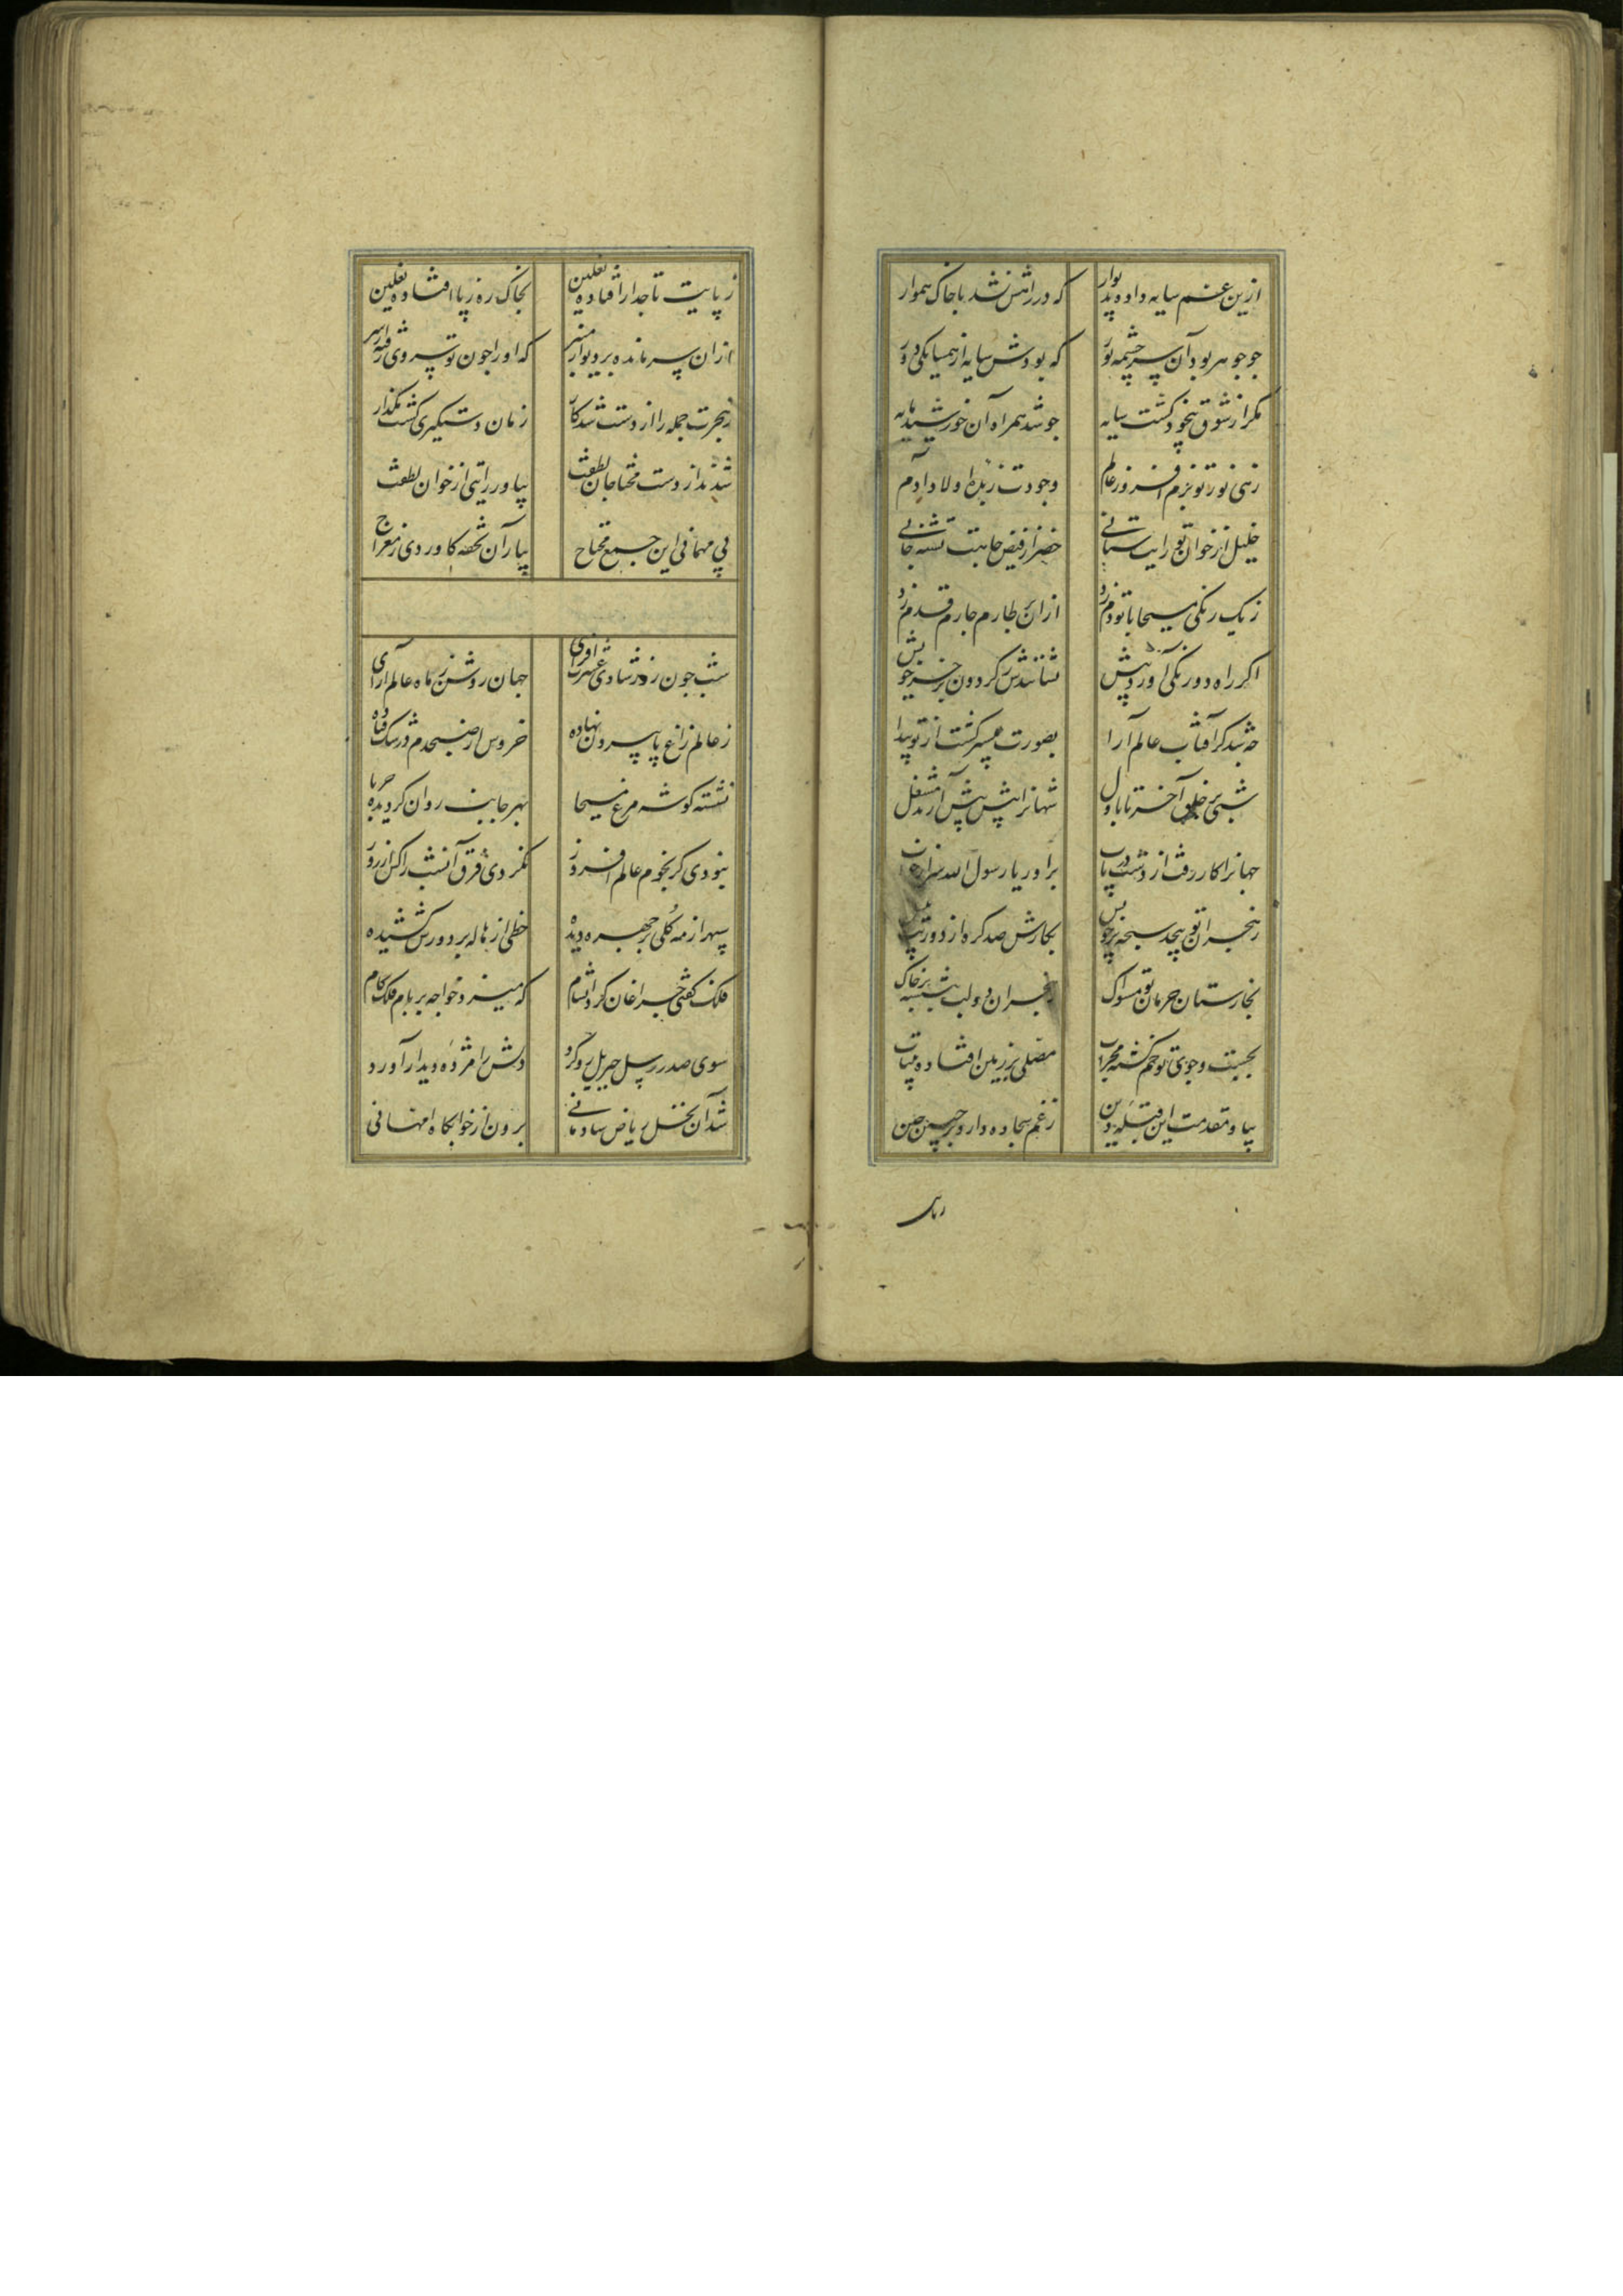 ازین غم سایه داده پدیوار که در راهش نشد با خاک هموار
جو جوهر بود آن سرچشمه نور که بودش سایه از همسایگی دور
مکر از شوق بیخود کشت سایه جو شد همراه آن خورشید پایه
زهی نور تو بزم افروز عالم وجودت زبده اولاد آدم
خلیل از خوان تو رایت ستانی خضر از فیض جامت تشنه جانی
زیک رنکی مسیحا با تو دم زد ازان بر طارم جارم قدم زد
اکر راه دورنکی آورد پیش نشانندش ز کردون بر خر خویش
چه شد کر آفتاب عالم آرا بصورت پیشتر کشت از تو پیدا
شبی بر خلق آخر تا باول شهانرا پیش پیش آرند مشعل
جهانرا کار رفت از دست دریاب برآور یا رسول الله سر از خواب
ز هجران تو پیچد سبحه بر خویش بکارش صد کره از دوریت بیش
بخارستان حرمان تو مسواک ز هجران دو لب بنشسته بر خاک
بجست وجوی تو خم کشته محراب مصلی بر زمین افتاده بیتاب
بیا و مقدمت این قبله دین ز غم سجاده دارد بر جبین چین
زپایت تاجدار افتاده نعلین بخاک ره زپا افتاده نعلین
ازان سر مانده بر دیوار منبر که اورا جون تو سروی رفته از سر
ز هجرت جمله را از دست شد کار زمان دستکیری کشت مکذار
شدند از دست محتاجان لطفت بیاور راتبی از خوان لطفت
پی مهمانی این جمع محتاج بیار آن تحفه کاوردی ز معراج
شب جون روز شادی عشرت افزای جهان روشن ز ماه عالم آرای
ز عالم زاغ پا بیرون نهاده خروس از صبحدم در شک فتاده
نشسته کوشه مرغ مسیحا بهر جانب روان کردیده حربا
نبودی کر نجوم عالم افروز نکردی فرق آنشب را کس از روز
سپهر از مه کلی بر جهره دیده خطی از هاله بر دورش کشیده
فلک کفتی جراغان کرد آنشام که میزد خواجه بر بام فلک کام
سوی صدر رسل جبریل رو کرد دلش را مژده دیدار آورد
شد آن نخل ریاض شادمانی برون از خوابکاه امهانی